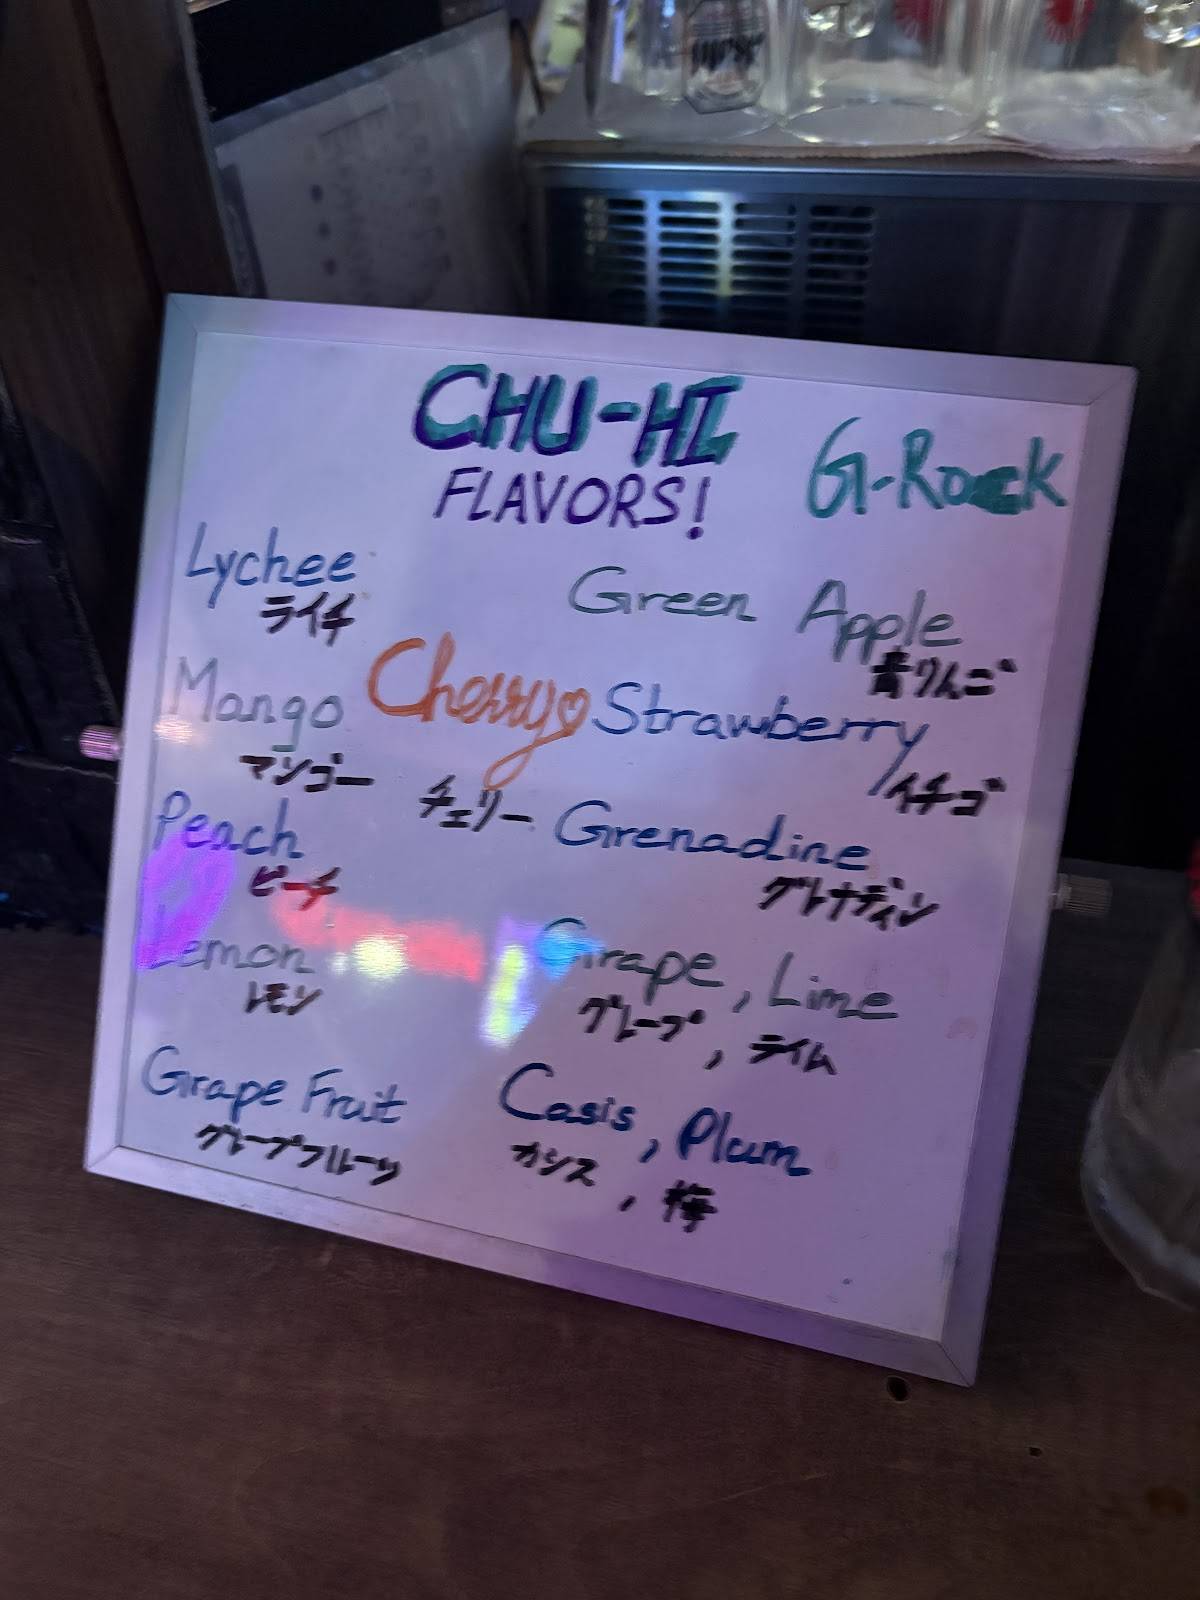 CHU-HI
FLAVORS!
G-Rock
Lychee
ライチ
Green Apple
青りんご
Mango
マンゴー
Cherry♡
チェリー
Strawberry
イチゴ
Peach
ピーチ
Grenadine
グレナディン
Lemon
レモン
Grape, Lime
グレープ, ライム
Grape Fruit
グレープフルーツ
Casis, Plum
カシス, 梅